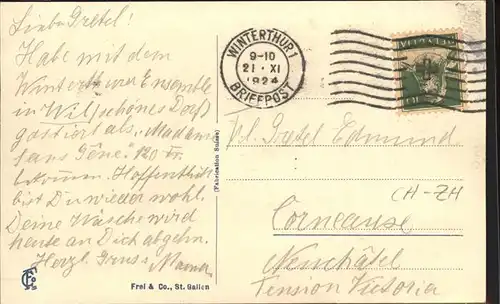 Liebe Gretel!
Habe mit dem
Winterthurer Ensemble
in Wil (schönes Dorf)
gastiert als „Madame
sans Gêne". 120 fr.
bekommen. Hoffentlich
bist Du wieder wohl.
Deine Wäsche wird
heute an Dich abgehn.
Herzl. Gruss Mama
Frei & Co., St. Gallen
(Fabrication Suisse)
WINTERTHUR 1
9-10
21. XI
1924
BRIEFPOST
HELVETIA
10
Frl. Gretel Edmund
CH-ZH
Corneause
Neuchâtel
Pension Victoria